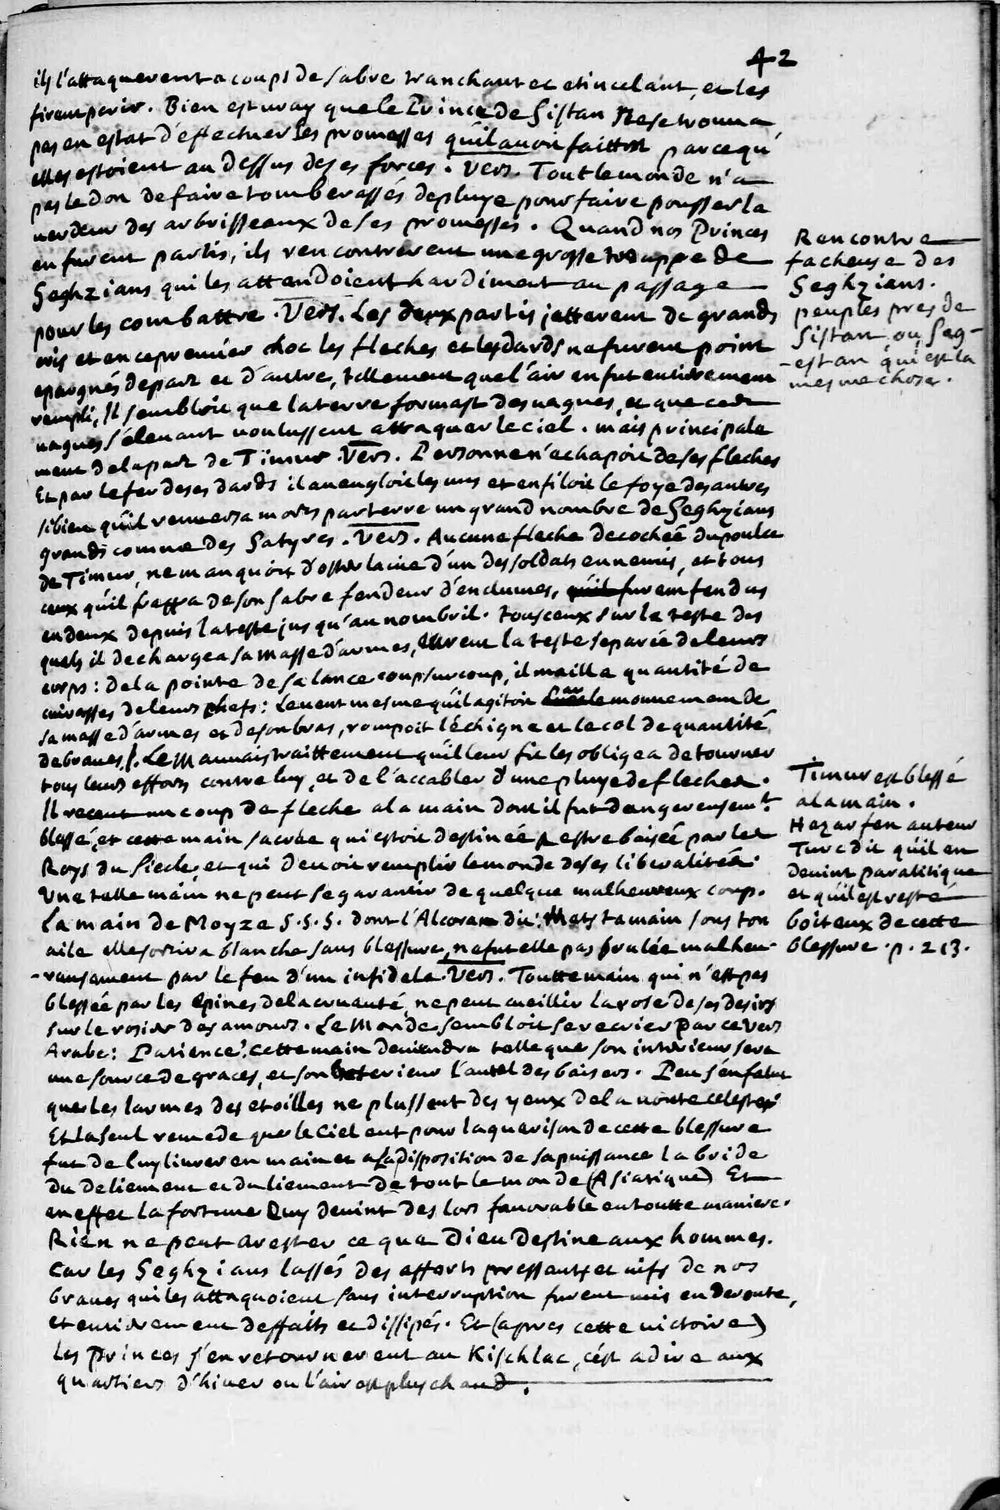 42
ils l'attaquerent a coups de sabre tranchant et etincelant, et les
firent perir. Bien est vray que le Prince de Sistan ne se trouva
pas en estat d'effectuer ses promesses qu'il avoit faittes parcequ'
elles estoient au dessus de ses forces. Vers. Tout le monde n'a
pas le don de faire tomber assés de pluye pour faire pousser la
verdeur des arbrisseaux de ses promesses. Quand nos Princes
en furent partis, ils rencontrerent une grosse trouppe de
Seghzians qui les attendoient hardiment au passage
pour les combattre. Vers. Les deux partis jetterent de grands
cris et en ce premier choc les fleches et les dards ne furent point
epargnés de part et d'autre, tellement que l'air en fut entierement
rempli, Il sembloit que la terre formast des vagues, et que ces
vagues s'elevant voulussent attaquer le ciel. mais principale
ment de la part de Timur Vers. Personne n'echapoit de ses fleches
Et par le fer de ses dards il aveugloit les uns et enfiloit le foye des autres
si bien qu'il renversa morts par terre un grand nombre de Seghzians
grands comme des Satyres. Vers. Aucune fleche decochée du poulce
de Timur, ne manquoit d'oster la vie d'un des soldats ennemis, et tous
ceux qu'il frappa de son sabre fendeur d'enclumes, furent fendus
en deux depuis la teste jusqu'au nombril. tous ceux sur la teste des
quels il dechargea sa masse d'armes, eurent la teste separée de leurs
corps: de la pointe de sa lance coup sur coup, il mailla quantité de
cuirasses de leurs chefs: Le vent mesme qu'il agitoit par le mouvement de
sa masse d'armes et de son bras, rompoit l'échigne et le col de quantité
de braves. Le mauvais traittement qu'il leur fit les obligea de tourner
tous leurs efforts contre luy, et de l'accabler d'une pluye de fleches.
Il receut un coup de fleche a la main dont il fut dangereusemt
blessé, et cette main sacrée qui estoit destinée a estre baisée par les
Roys du Siecle, et qui devoit remplir le monde de ses liberalitées.
Une telle main ne peut se garantir de quelque malheureux coup.
La main de Moyze S.S.S. dont l'Alcoran dit: Mets ta main sous ton
aile elle sortira blanche sans blessure, ne fut elle pas brulée malheu-
-reusement par le feu d'un infidele. Vers. Toutte main qui n'est pas
blessée par les epines de la cruauté, ne peut cueillir la rose de ses desirs
sur le rosier des amours. Le Monde sembloit se recrier par ce vers
Arabe: Patience! cette main deviendra telle que son interieur sera
une source de graces, et son exterieur l'autel des baisers. Peu s'en falut
que les larmes des etoilles ne plussent des yeux de la voute celeste.
Et le seul remede que le Ciel eut pour la guerison de cette blessure
fut de luy livrer en main et a la disposition de sa puissance la bride
du deliement et du liement de tout le monde (Asiatique) Et
en effet la fortune luy devint des lors favorable en toutte maniere.
Rien ne peut arester ce que Dieu destine aux hommes.
Car les Seghzians lassés des efforts pressants et vifs de nos
braves qui les attaquoient sans interruption furent mis en deroute,
et entierement deffaits et dissipés. Et (apres cette victoire)
Les Princes s'en retournerent au Kischlac, c'est a dire aux
quartiers d'hiver ou l'air est plus chaud.
Rencontre
facheuse des
Seghzians.
peuples pres de
Sistan, ou Seg-
-estan qui est la
mesme chose.
Timur est blessé
a la main.
Hezarfen auteur
Turc dit qu'il en
devint paralitique
et qu'il est resté
boiteux de cette
blessure. p. 213.